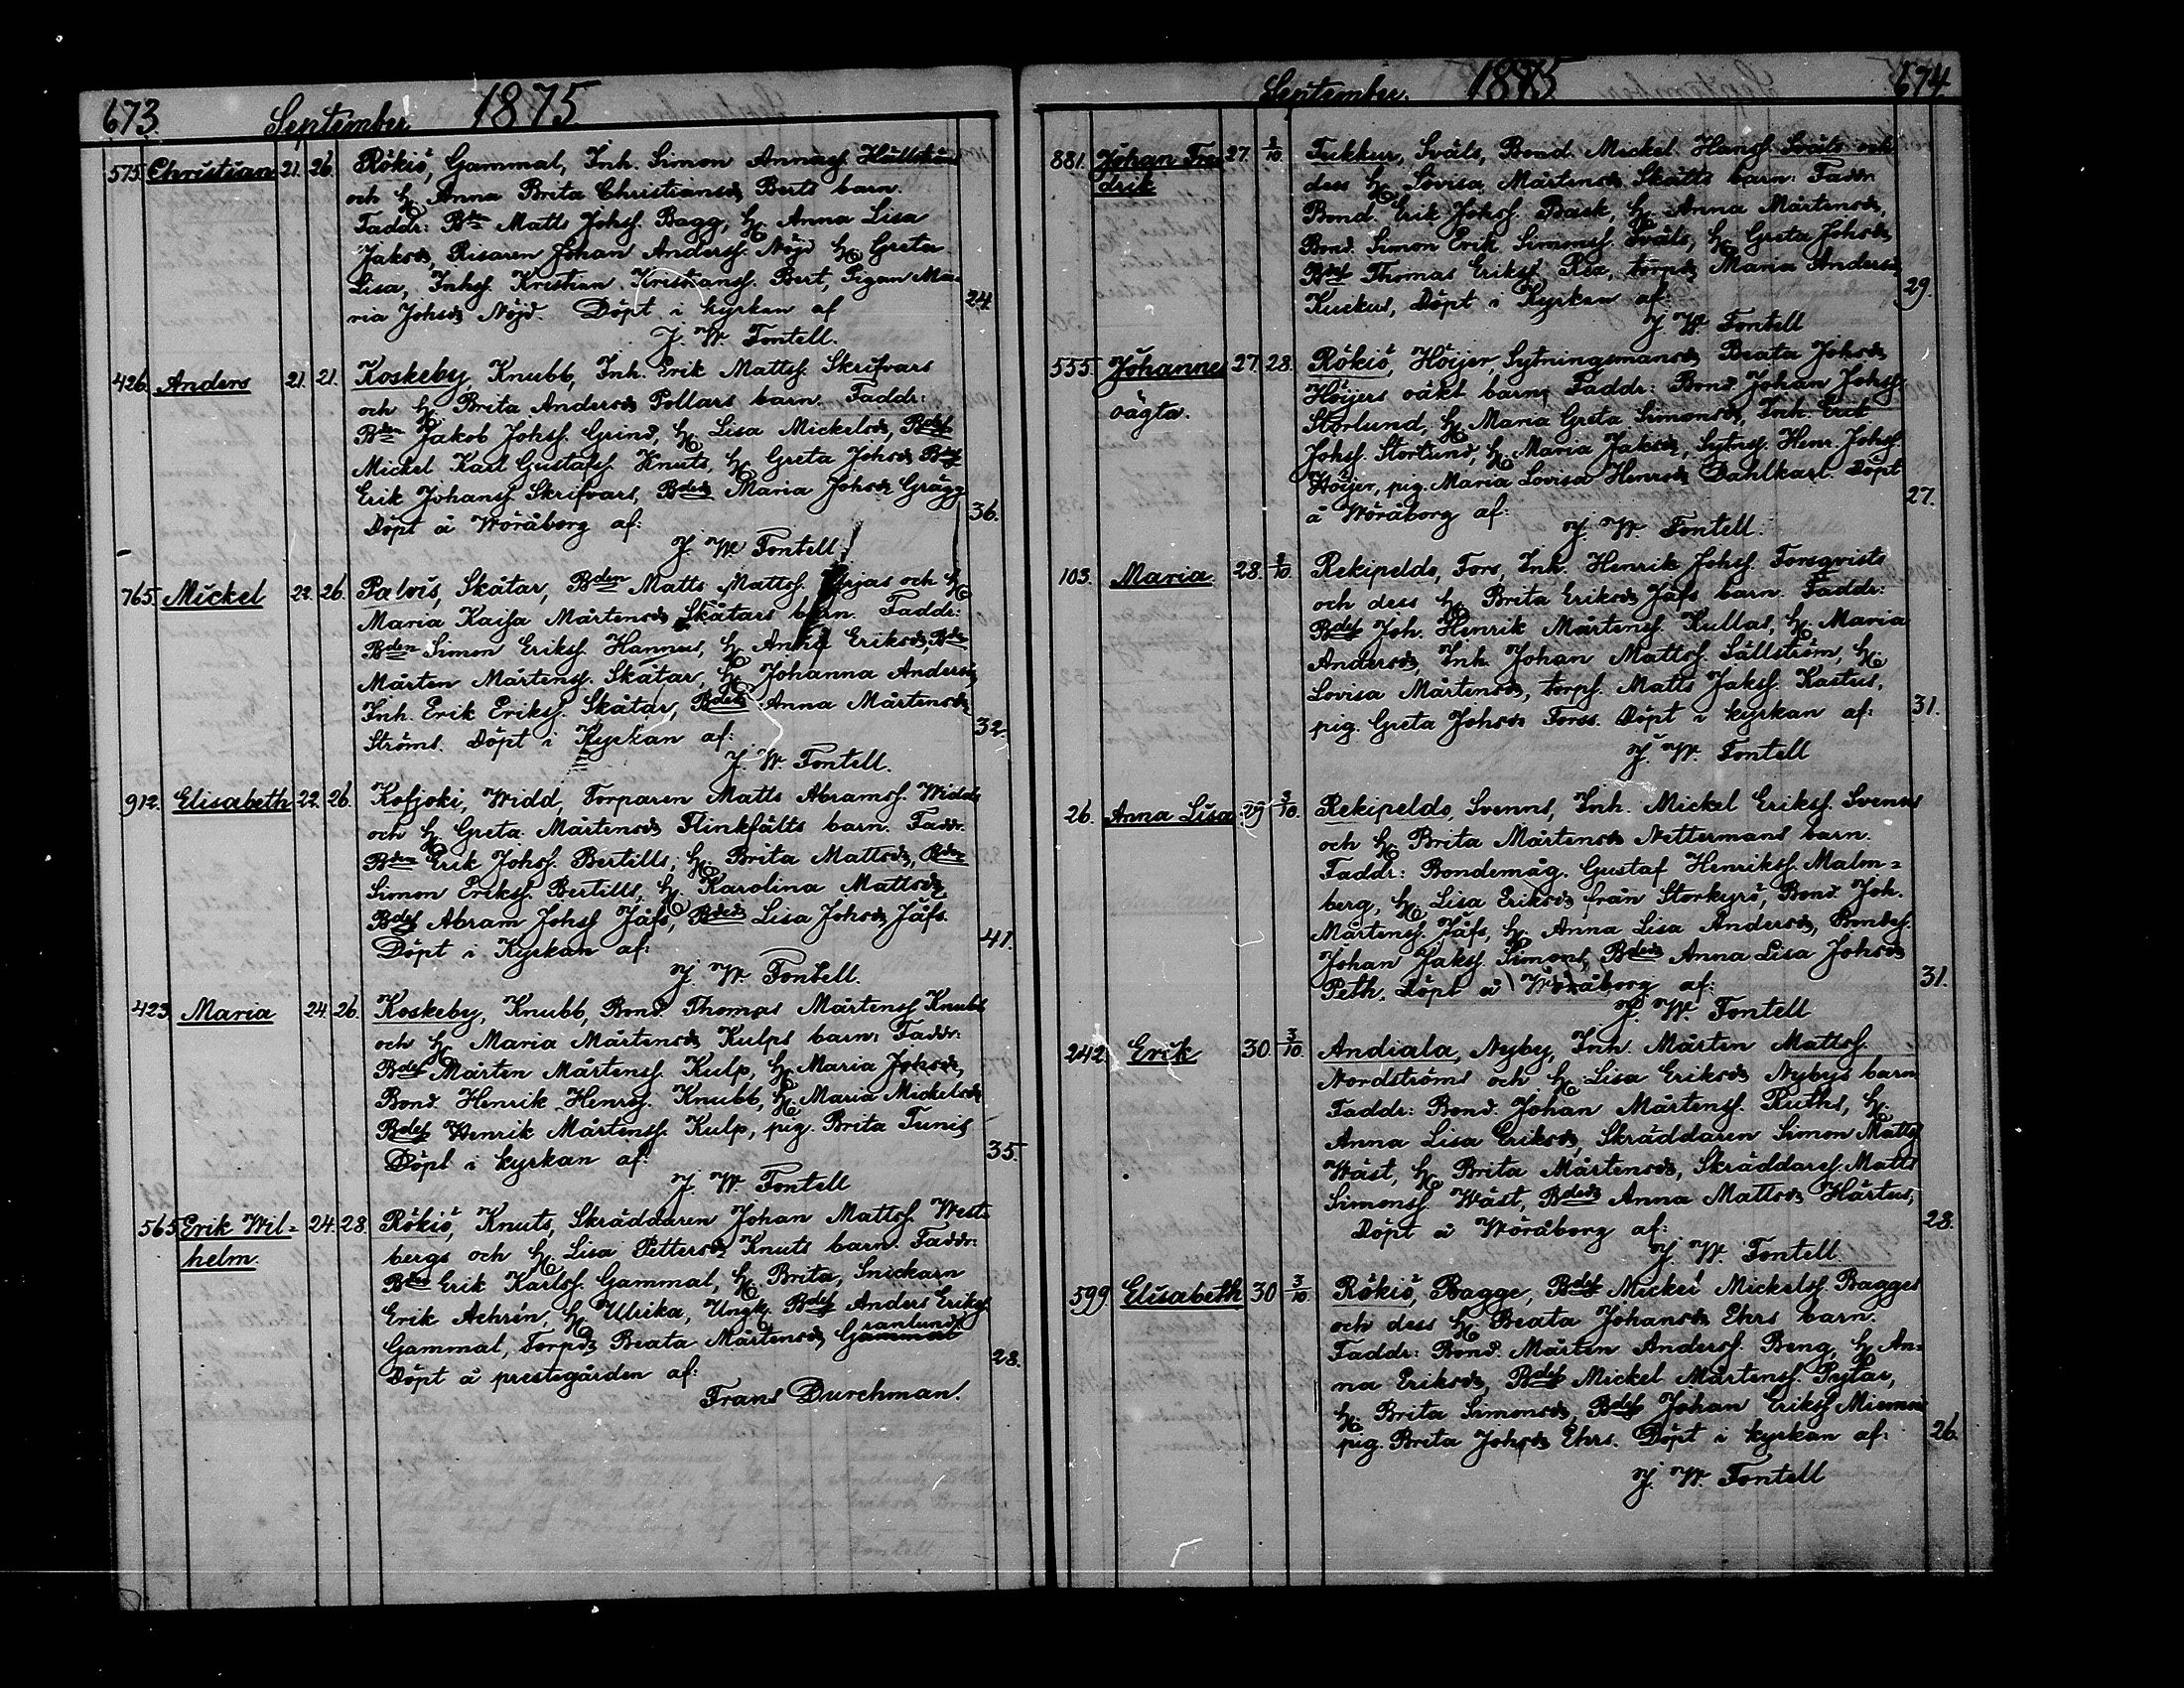 673. September. 1875
575. Christian 21. 26. Rökiö, Gammal, Inh. Simon Annasf.
och H. Anna Brita Christiansdr Berts barn.
Faddr: Bden Matts Johsf. Bagg, H. Anna Lisa
Jaksdr, Risaren Johan Andersf. Nöjd H. Greta
Lisa, Inhsf. Kristian Kristiansf. Bert, Pigan Ma-
ria Johsdr Nöjd. Döpt i kyrkan af 24.
J. W. Fontell.
426. Anders 21. 21. Koskeby, Knubb, Inh. Erik Mattsf. Skrifvars
och H. Brita Andersdr Pollars barn. Faddr:
Bden Jakob Johsf. Grind, H. Lisa Mickelsdr, Bdesf
Mickel Karl Gustafsf. Knuts, H. Greta Johsdr Bdesf
Erik Johansf. Skrifvars, Bdedr Maria Johsdr Grägg
Döpt å Wöråborg af: 36.
J. W. Fontell.
765. Mickel 22. 26. Palvis, Skåtar, Bden Matts Mattsf. och H.
Maria Kajsa Mårtensdr Skåtars barn. Faddr:
Bden Simon Eriksf. Hannus, H. Anna Eriksdr, Bden
Mårten Mårtensf. Skåtar, H. Johanna Andersdr,
Inh. Erik Eriksf. Skåtar, Bdedr Anna Mårtensdr
Ströms. Döpt i Kyrkan af: 32.
J. W. Fontell.
912. Elisabeth 22. 26. Kofjoki, Widd, Torparen Matts Abramsf. Widds
och H. Greta Mårtensdr Flinkfälts barn. Faddr.
Bden Erik Johsf. Bertills, H. Brita Mattsdr, Bden
Simon Eriksf. Bertills, H. Karolina Mattsdr,
Bdesf Abram Johsf Jåfs, Bdedr Lisa Johsdr Jåfs.
Döpt i Kyrkan af: 41.
J. W. Fontell.
423. Maria 24. 26. Koskeby, Knubb, Bond. Thomas Mårtensf Knubb
och H. Maria Mårtensdr Kulps barn: Faddr:
Bdesf Mårten Mårtensf. Kulp, H. Maria Johsdr,
Bond. Henrik Henrsf. Knubb, H. Maria Mickelsdr
Bdesf Henrik Mårtensf. Kulp, pig. Brita Tunis
Döpt i kyrkan af: 35.
J. W. Fontell
565. Erik Wil- 24. 28. Rökiö, Knuts, Skräddaren Johan Mattsf. West-
helm. bergs och H. Lisa Pettersdr Knuts barn. Faddr:
Bden Erik Karlsf. Gammal, H. Brita, Snickarn
Erik Achrén, H. Ulrika, Ungk. Bdesf Anders Eriksf.
Gammal, Torpdr Beata Mårtensdr Gammal
Döpt å prestegården af: 28.
Frans Durchman.
September. 1875 674
881. Johan Fre- 27. 2/10. Tukkur, Sväls, Bond. Mickel Hansf. Sväls och
drik dess H. Lovisa Mårtensdr Skåtts barn: Faddr
Bond. Erik Johsf. Back, H. Anna Mårtensdr,
Bond. Simon Erik Simonsf. Sväls, H. Greta Johsdr,
Bdesf Thomas Eriksf. Rex, torpdr Maria Andersdr
Kuckus, Döpt i Kyrkan af: 29.
J. W. Fontell
555. Johannes 27. 28. Rökiö, Höijer, Sytningsmansdr Beata Johsdr
oägta. Höijers oäkt barn, Faddr: Bond. Johan Johsf.
Storlund, H. Maria Greta Simonsdr, Inh. Erik
Johsf. Storlund, H. Maria Jaksdr, Sytnsf. Henr. Johsf.
Höijer, pig. Maria Lovisa Henrsdr Dahlkarl. Döpt
å Wöråborg af: 27.
J. W. Fontell.
103. Maria 28. 3/10. Rekipeldo, Fors, Inh. Henrik Johsf. Forsqvists
och dess H. Brita Eriksdr Jåfs barn. Faddr:
Bdesf Joh. Henrik Mårtensf. Kullas, H. Maria
Andersdr, Inh. Johan Mattsf. Sällström, H.
Lovisa Mårtensdr, torpf. Matts Jaksf. Kastus,
pig. Greta Johsdr Forss. Döpt i kyrkan af: 31.
J. W. Fontell
26. Anna Lisa 29. 3/10. Rekipeldo, Svenns, Inh. Mickel Eriksf. Svenns
och H. Brita Mårtensdr Nettermans barn.
Faddr: Bondemåg. Gustaf Henriksf. Malm-
berg, H. Lisa Eriksdr från Storkyrö, Bond. Joh.
Mårtensf. Jåfs, H. Anna Lisa Andersdr, Bondesf.
Johan Jaksf. Simons, Bdedr Anna Lisa Johsdr
Peth. Döpt å Wöråborg af: 31.
J. W. Fontell
242. Erik 30. 3/10. Andiala, Nyby, Inh. Mårten Mattsf.
Nordströms och H. Lisa Eriksdr Nybys barn
Faddr: Bond. Johan Mårtensf. Ruths, H.
Anna Lisa Eriksdr, Skräddaren Simon Mattsf
Wäst, H. Brita Mårtensdr, Skräddaresf. Matts
Simonsf. Wäst, Bdedr Anna Mattsdr Härtus,
Döpt å Wöråborg af: 28.
J. W. Fontell
599. Elisabeth 30. 3/10. Rökiö, Bagge, Bdesf Mickel Mickelsf. Bagges
och dess H. Beata Johansdr Ehrs barn.
Faddr: Bond. Mårten Andersf. Beng, H. An-
na Eriksdr, Bdesf Mickel Mårtensf. Pytar,
H. Brita Simonsdr, Bdesf Johan Eriksf
pig. Brita Johsdr Ehrs. Döpt i kyrkan af: 26.
J. W. Fontell